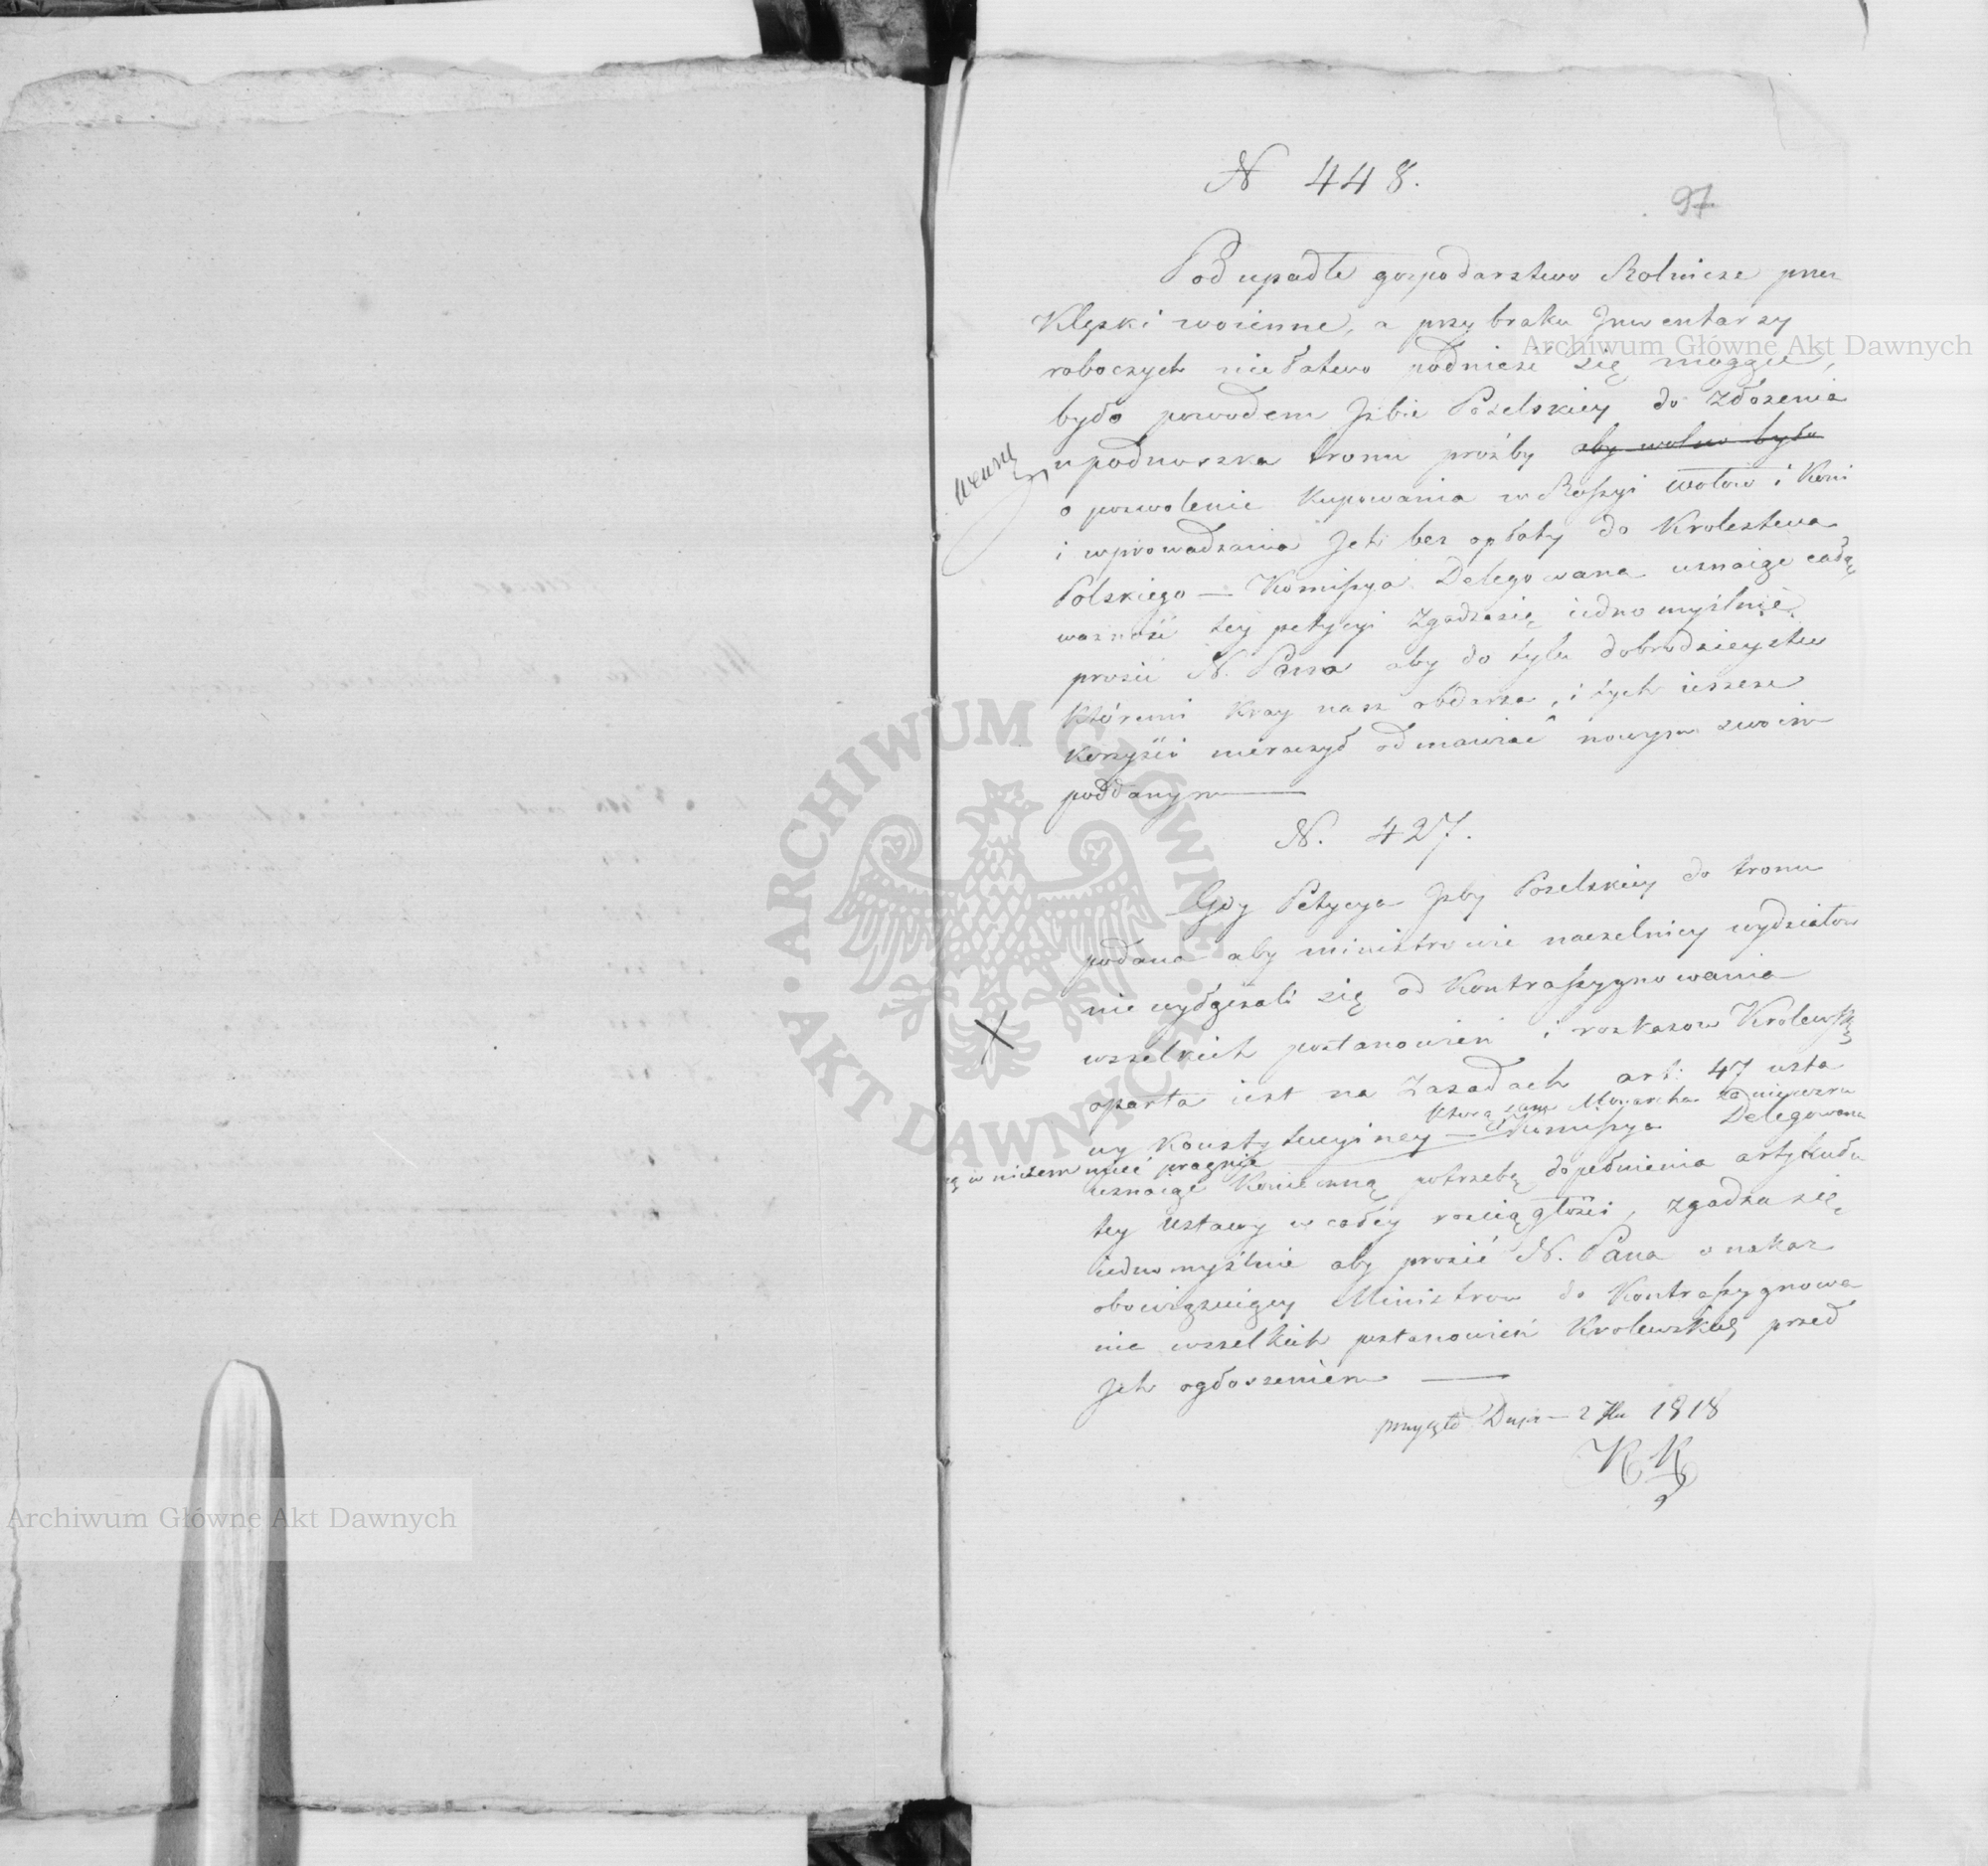 N 448.
97
Podupadłe gospodarstwo Rolnicze przez
Klęski woienne, a przy braku Jnwentarzy
roboczych niełatwo podnieść się mogące,
było powodem Jzbie Poselskiey do złożenia
upodnoszka tronu prośby aby wolno było
o pozwolenie kupowania w Rossyi wołow i koni
i wprowadzania Jch bez opłaty do Krolestwa
Polskiego — Kommissya Delegowana uznaiąc całą
ważność tey petycyi zgadzasię iednomyślnie
prosić N. Pana aby do tylu dobrodzieystw
któremi kray nasz obdarza, i tych ieszcze
korzyści nieraczył odmawiać nowym swoim
poddanym —
N. 427.
Gdy Petycya Jzby Poselskiey do tronu
podana aby ministrowie naczelnicy wydziałow
nie wyłączali się od Kontrassygnowania
wszelkich postanowień i rozkazow Krolewski
oparta iest na zasadach art: 47 usta
którą sam Monarcha
wy Konstytucyiney — Kommissya Delegowana
w niczem mieć pragnie
uznaiąc konieczną potrzebę dopełnienia artykułu
tey Ustawy w całey rozciągłości, zgadza się
iednomyślnie aby prosić N. Pana o nakaz
obowiązuiący Ministrow do Kontrassygnowa
nia wszelkich postanowień Krolewskich przed
Jch ogłoszeniem —
przyięto Dnia 2 1818
KK
X
Archiwum Główne Akt Dawnych
Archiwum Główne Akt Dawnych
· ARCHIWUM GŁÓWNE · AKT DAWNYCH